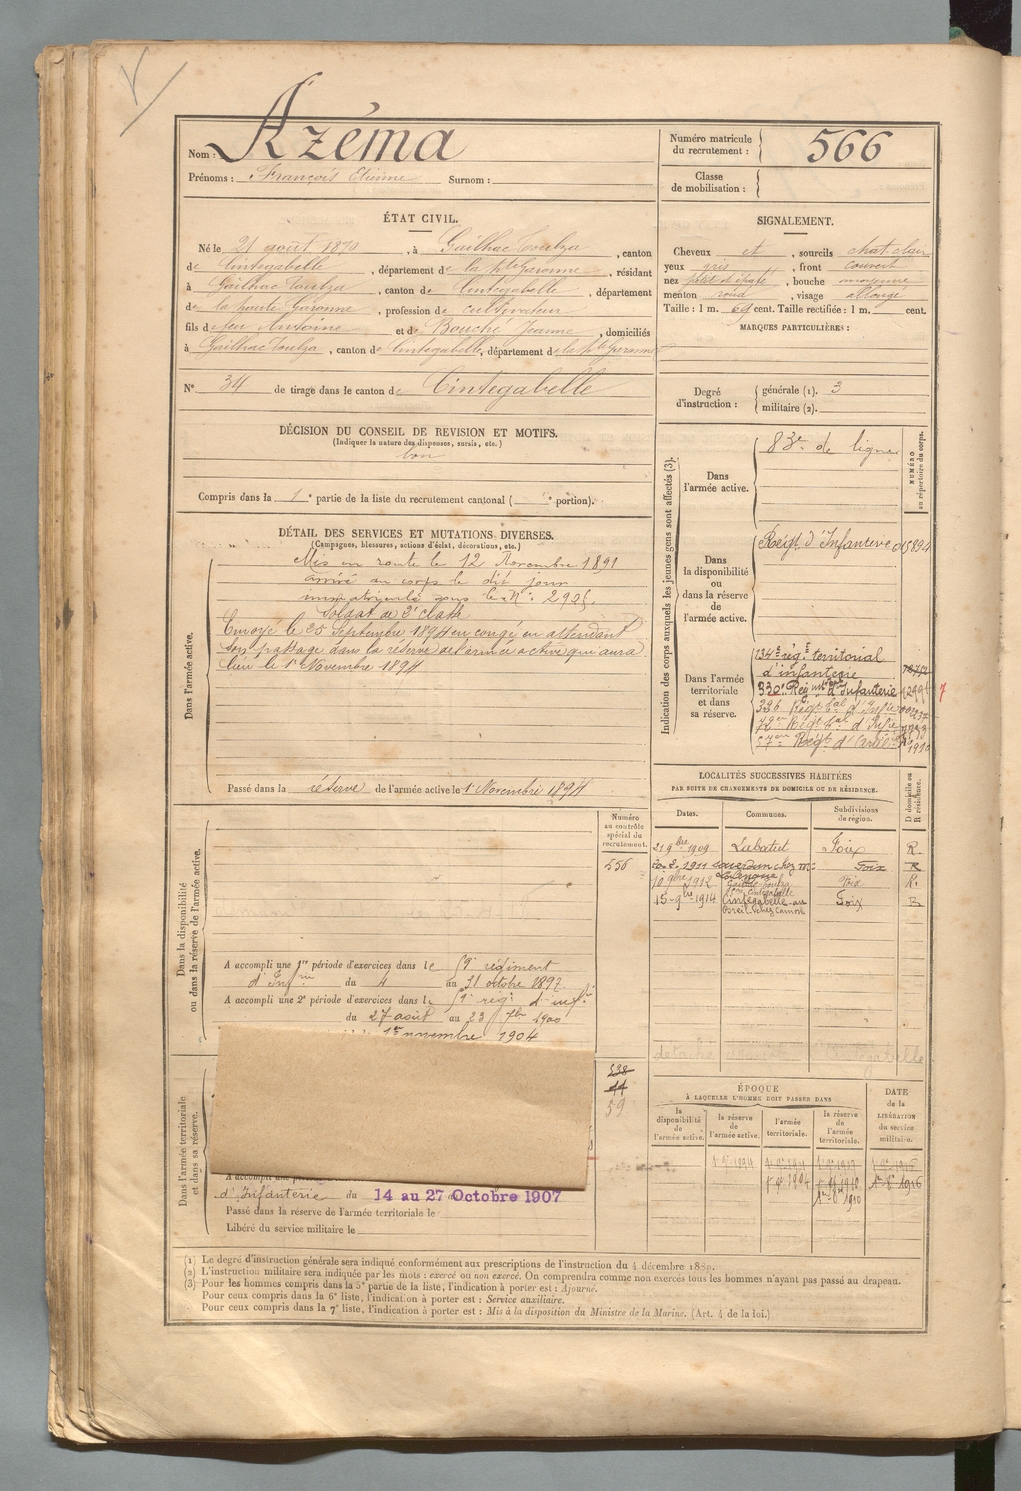 Nom : Azéma
Prénoms : François Etienne Surnom :
Numéro matricule du recrutement : 566
Classe de mobilisation :
ÉTAT CIVIL.
Né le 21 août 1870, à Gailhac Toulza, canton
de Cintegabelle, département de la hte Garonne, résidant
à Gailhac Toulza, canton de Cintegabelle, département
de la haute Garonne, profession de cultivateur
fils de feu Antoine et de Bouché Jeanne, domiciliés
à Gailhac Toulza, canton de Cintegabelle, département de la hte Garonne
N° 34 de tirage dans le canton de Cintegabelle
SIGNALEMENT.
Cheveux et, sourcils chat. clair
yeux gris, front couvert
nez petit et épaté, bouche moyenne
menton rond, visage allongé
Taille : 1 m. cent. Taille rectifiée : 1 m. cent.
MARQUES PARTICULIÈRES :
Degré d'instruction :
générale (1). 3
militaire (2).
DÉCISION DU CONSEIL DE REVISION ET MOTIFS.
(Indiquer la nature des dispenses, sursis, etc.)
bon
Compris dans la 1e partie de la liste du recrutement cantonal ( e portion).
DÉTAIL DES SERVICES ET MUTATIONS DIVERSES.
(Campagnes, blessures, actions d'éclat, décorations, etc.)
Dans l'armée active.
Mis en route le 12 Novembre 1891
arrivé au corps le dit jour
immatriculé sous le N° : 2905.
Soldat de 2e classe
Envoyé le 25 Septembre 1894 en congé en attendant
son passage dans la réserve de l'armée active qui aura
lieu le 1er Novembre 1894
Passé dans la réserve de l'armée active le 1er Novembre 1894
Indication des corps auxquels les jeunes gens sont affectés (3).
NUMÉRO au répertoire du corps.
Dans l'armée active.
83e de ligne
Dans la disponibilité ou dans la réserve de l'armée active.
Régt d'Infanterie 15894
Dans l'armée territoriale et dans sa réserve.
134e régt territorial
d'infanterie
330e Régiment d'Infanterie
336 Régt tal d'Infie
Régt tal d'Infie
57e Régt d'Artie
LOCALITÉS SUCCESSIVES HABITÉES
PAR SUITE DE CHANGEMENTS DE DOMICILE OU DE RÉSIDENCE.
Dates. Communes. Subdivisions de région. D domicile ou R résidence.
21 9bre 1909 Labatut Foix R.
1911 Saverdun chez Mr Foix R
10 9bre 1912 Foix R.
15-9bre 1914 Cintegabelle au Foix R
Breil chez Camon
Dans la disponibilité ou dans la réserve de l'armée active.
Numéro au contrôle spécial du recrutement.
556
A accompli une 1re période d'exercices dans le régiment
d'Infrie du 4 au 31 octobre 1897.
A accompli une 2e période d'exercices dans le régt d'infie
du 27 août au 23 7bre 1900
1er novembre 1904
Dans l'armée territoriale et dans sa réserve.
538
44
59
d'Infanterie du 14 au 27 Octobre 1907
Passé dans la réserve de l'armée territoriale le
Libéré du service militaire le
ÉPOQUE
À LAQUELLE L'HOMME DOIT PASSER DANS
la disponibilité de l'armée active. la réserve de l'armée active. l'armée territoriale. la réserve de l'armée territoriale.
DATE de la LIBÉRATION du service militaire.
(1) Le degré d'instruction générale sera indiqué conformément aux prescriptions de l'instruction du 4 décembre 1889.
(2) L'instruction militaire sera indiquée par les mots : exercé ou non exercé. On comprendra comme non exercés tous les hommes n'ayant pas passé au drapeau.
(3) Pour les hommes compris dans la 5e partie de la liste, l'indication à porter est : Ajourné.
Pour ceux compris dans la 6e liste, l'indication à porter est : Service auxiliaire.
Pour ceux compris dans la 7e liste, l'indication à porter est : Mis à la disposition du Ministre de la Marine. (Art. 4 de la loi.)